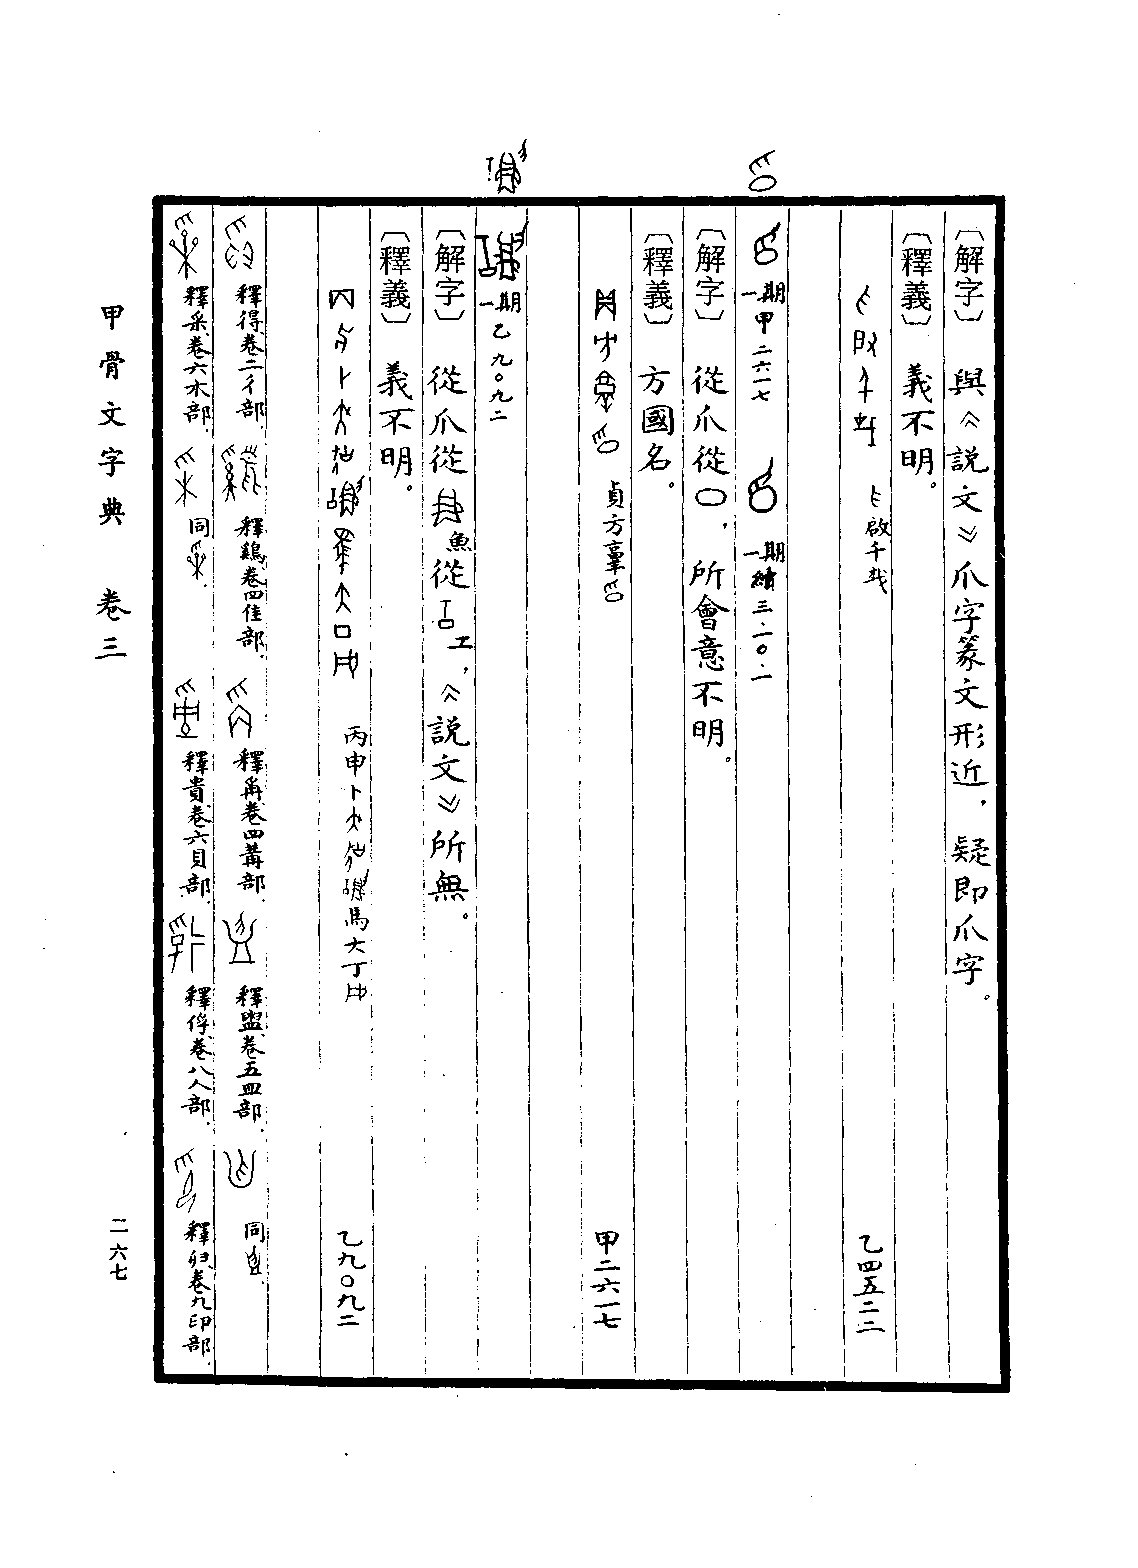 〔解字〕 與《説文》爪字篆文形近，疑即爪字。
〔釋義〕 義不明。
啟千 乙四五二二
一期 甲二六一七 一期 續三·一〇·一
〔解字〕 從爪從，所會意不明。
〔釋義〕 方國名。
貞方 甲二六一七
一期 乙九〇九二
〔解字〕 從爪從魚從工，《説文》所無。
〔釋義〕 義不明。
丙申卜 馬大丁 乙九〇九二
釋得，卷二彳部。 釋鷄，卷四隹部。 釋爯，卷四冓部。 釋盥，卷五皿部。 同
釋采，卷六木部。 同 釋貴，卷六貝部。 釋俘，卷八人部。 釋，卷九印部。
甲骨文字典 卷三
二六七